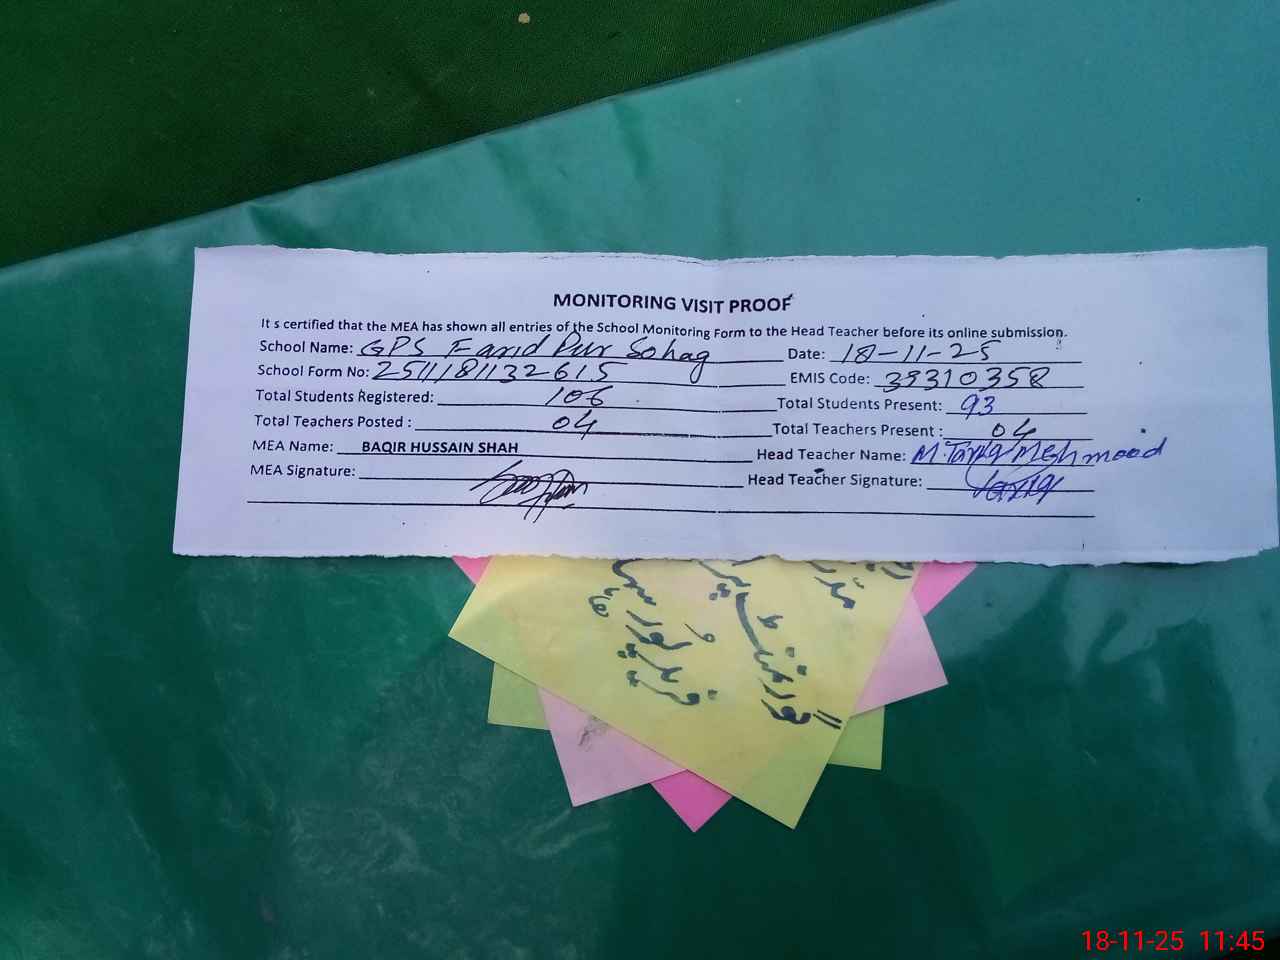 MONITORING VISIT PROOF
It s certified that the MEA has shown all entries of the School Monitoring Form to the Head Teacher before its online submission.
School Name: GPS Farid Pur Sohag Date: 18-11-25
School Form No: 2511181132615 EMIS Code: 39310358
Total Students Registered: 106 Total Students Present: 93
Total Teachers Posted : 04 Total Teachers Present : 04
MEA Name: BAQIR HUSSAIN SHAH Head Teacher Name: M. Tariq Mehmood
MEA Signature: Head Teacher Signature: Tariq
گورنمنٹ
فرید پور سہاگ
18-11-25 11:45